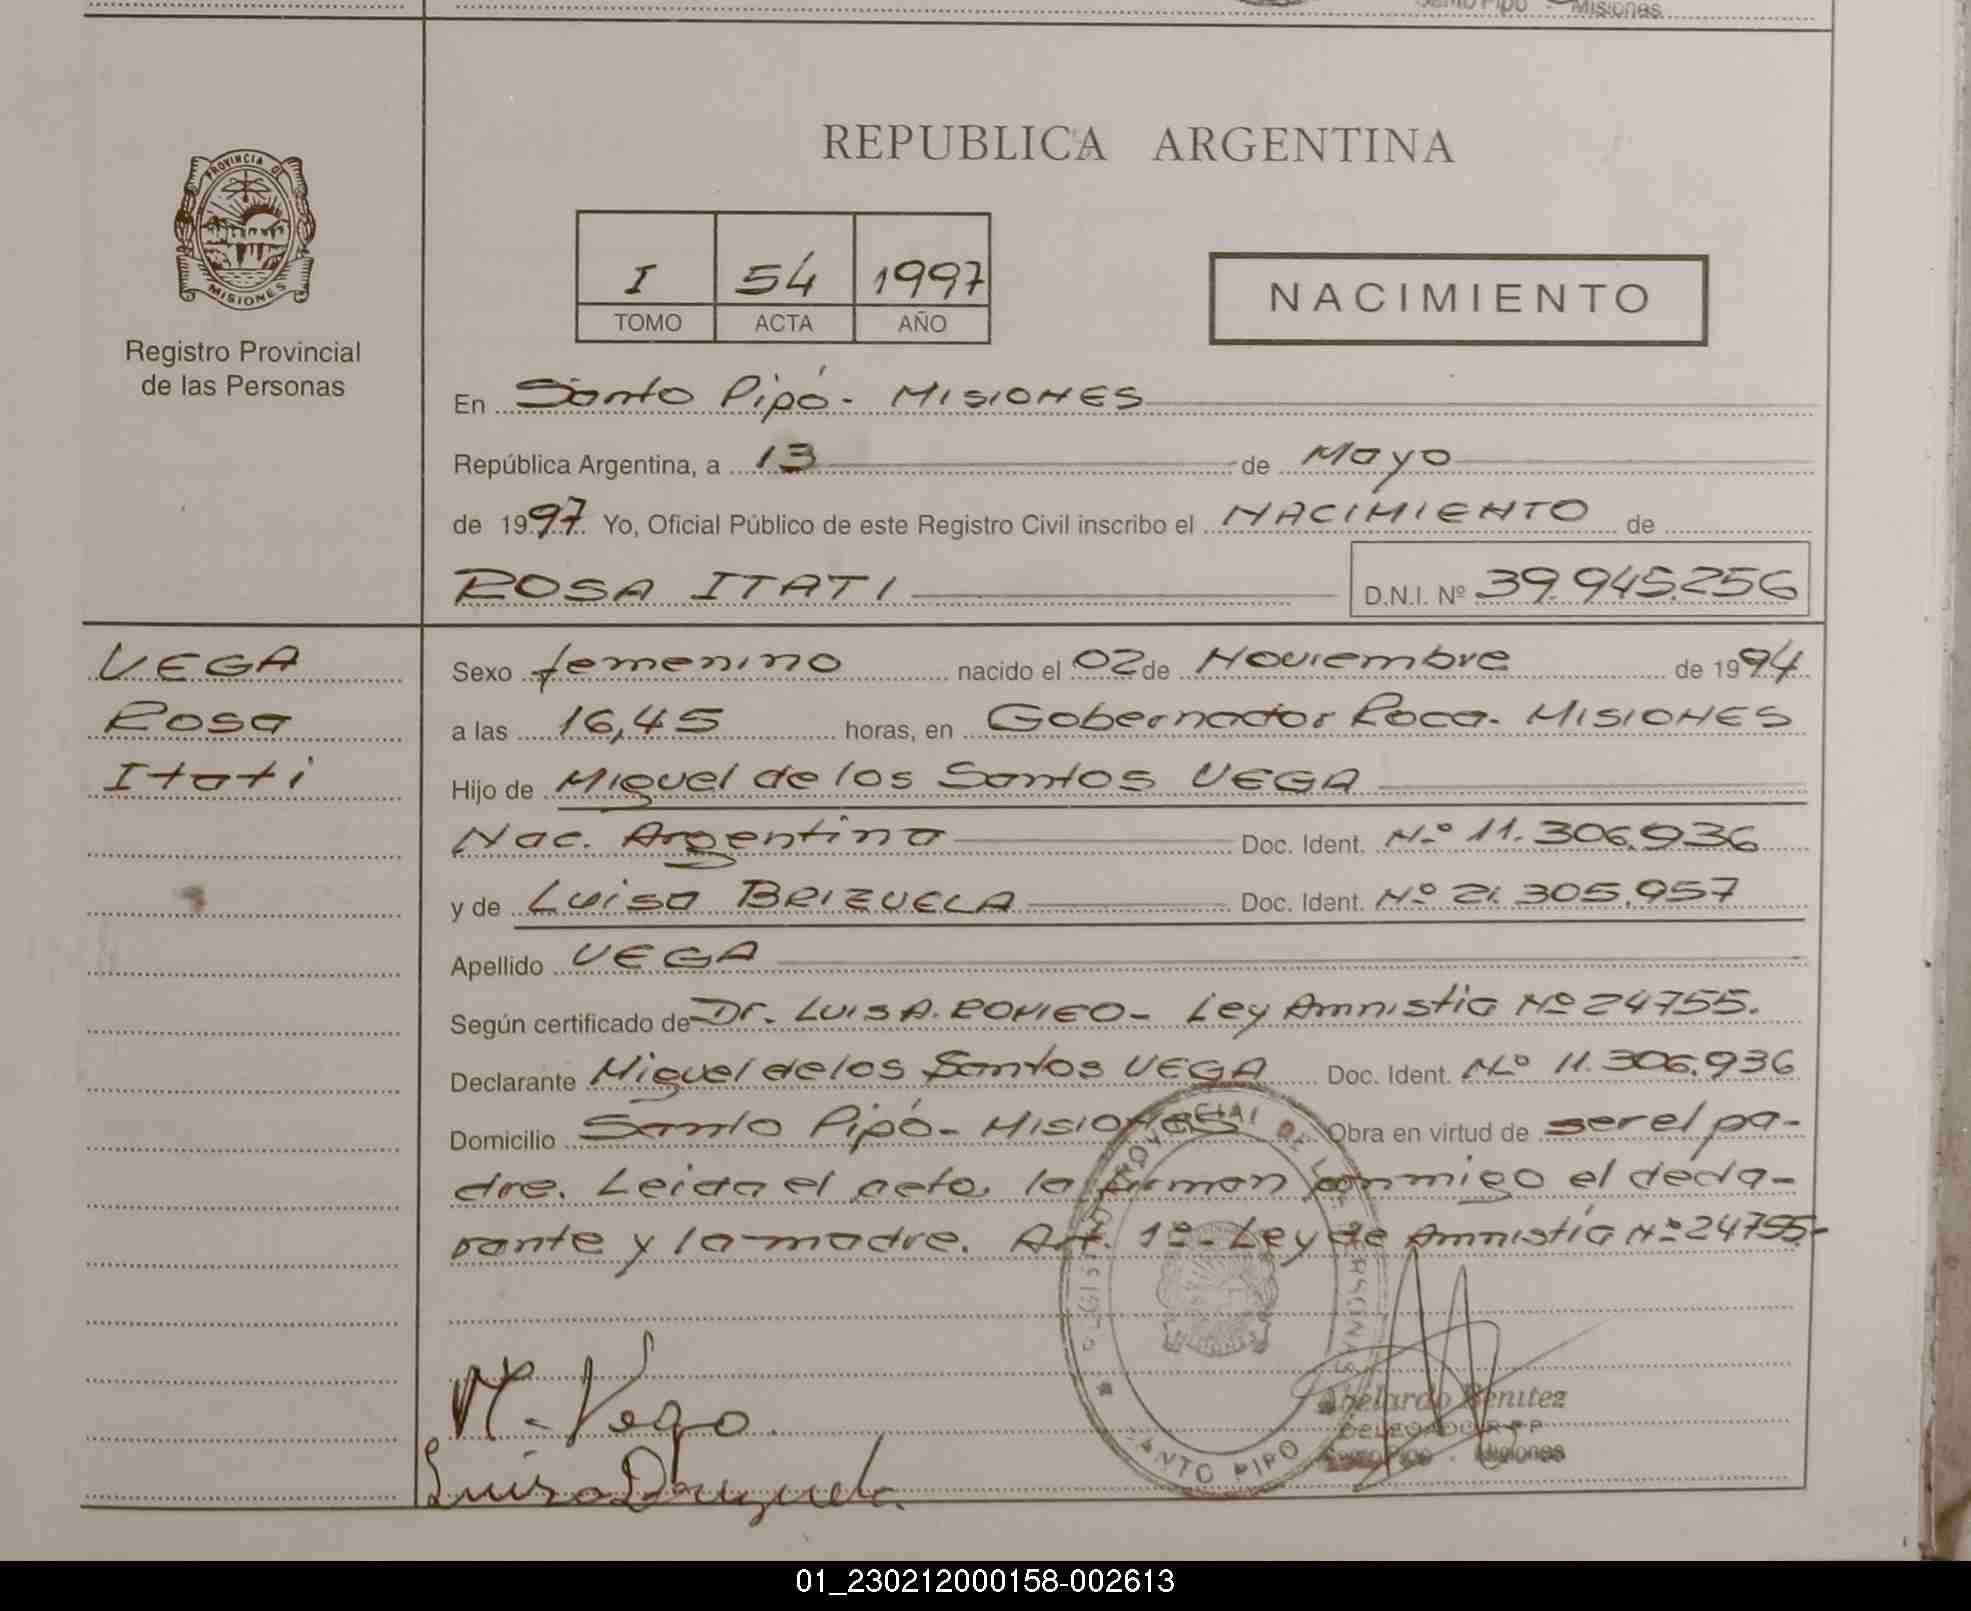 Santo Pipo - Misiones
PROVINCIA DE
MISIONES
Registro Provincial
de las Personas
REPUBLICA ARGENTINA
I 54 1997
TOMO ACTA AÑO
NACIMIENTO
En Santo Pipó - MISIONES
República Argentina, a 13 de Mayo
de 1997 Yo, Oficial Público de este Registro Civil inscribo el NACIMIENTO de
ROSA ITATI D.N.I. Nº 39.945.256
VEGA
Rosa
Itati
Sexo femenino nacido el 02 de Noviembre de 1994
a las 16,45 horas, en Gobernador Roca - MISIONES
Hijo de Miguel de los Santos VEGA
Nac. Argentina Doc. Ident. Nº 11.306.936
y de Luisa BRIZUELA Doc. Ident. Nº 21.305.957
Apellido VEGA
Según certificado de Dr. LUIS A. ROMEO - Ley Amnistia Nº 24755.
Declarante Miguel de los Santos VEGA Doc. Ident. Nº 11.306.936
Domicilio Santo Pipó - MISIONES Obra en virtud de ser el pa-
dre. Leida el acta, la firman conmigo el decla-
rante y la madre. Art. 1º - Ley de Amnistía Nº 24755-
M. Vega
Luisa Brizuela
REGISTRO PROVINCIAL DE LAS PERSONAS
SANTO PIPO
Abelardo Benitez
DELEGADO R.P.P.
Santo Pipo - Misiones
01_230212000158-002613